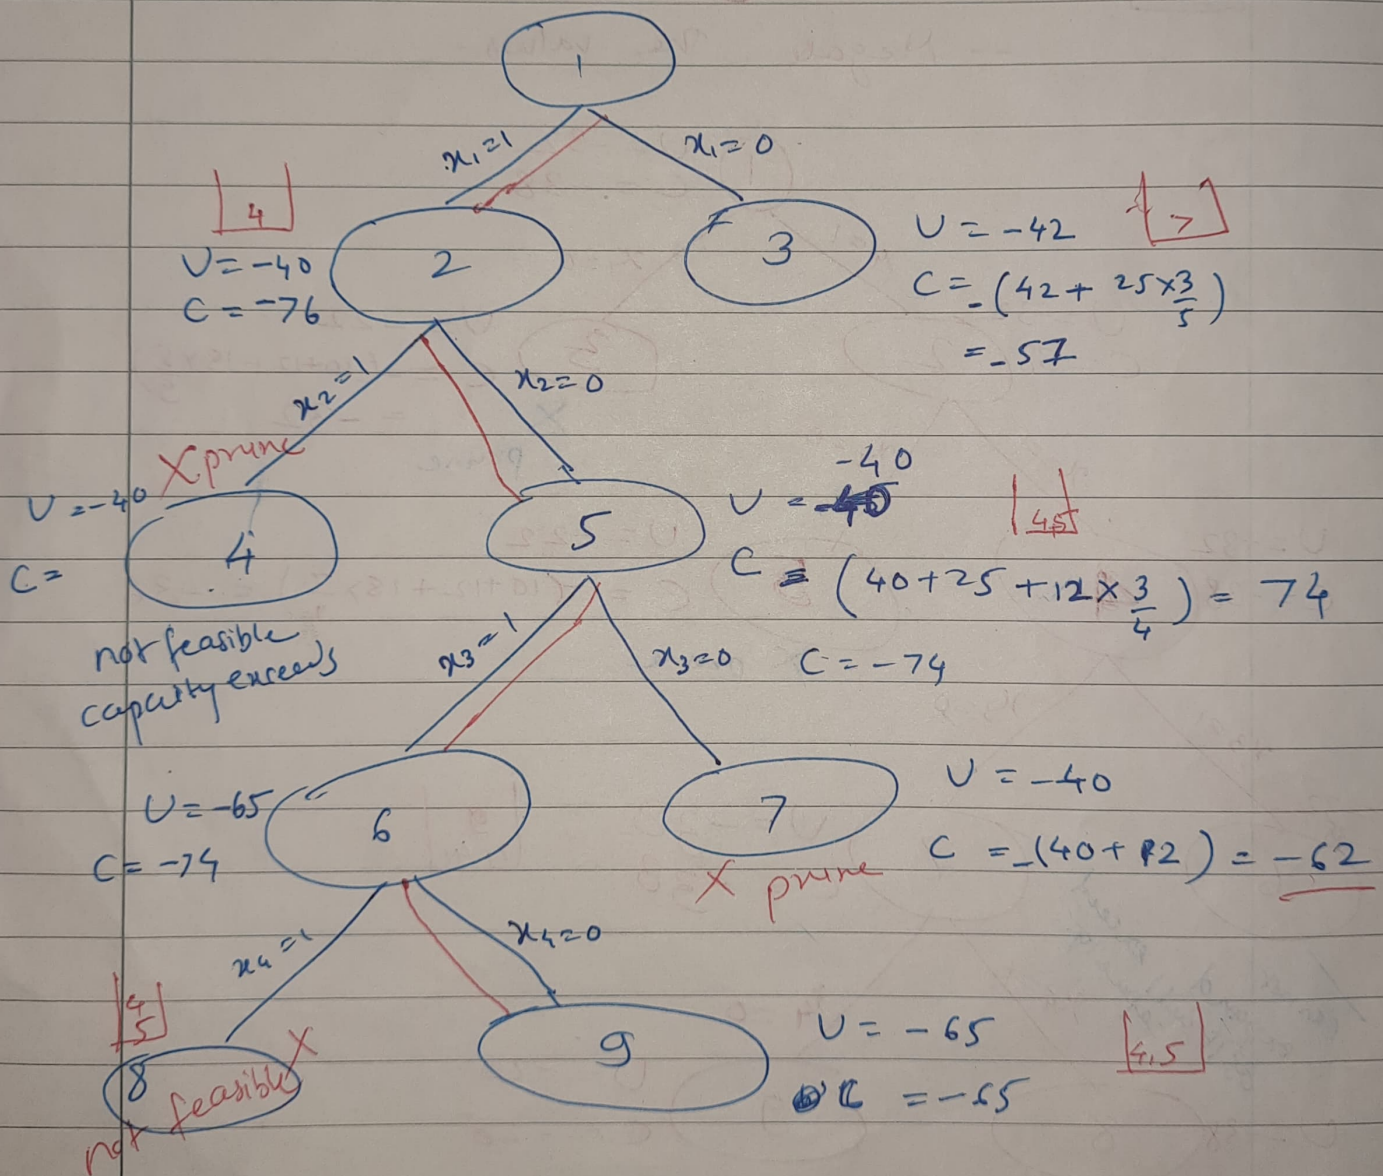 1
x₁=1
x₁=0
4
U=-40
C=-76
2
3
U=-42
7
C=-(42+25×3/5)
=-57
x₂=1
x₂=0
X prune
U=-40
C=
4
not feasible
capacity exceeds
5
-40
U=
4,5
C=(40+25+12×3/4)=74
C=-74
x₃=1
x₃=0
U=-65
C=-74
6
7
U=-40
C=-(40+12)=-62
X prune
x₄=1
x₄=0
4
5
8
X
not feasible
9
U=-65
C=-65
4,5